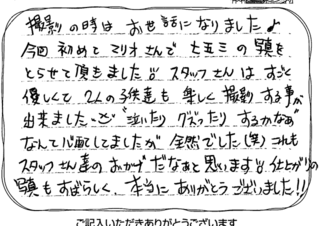 撮影の時は お世話になりました♪
今回 初めて マリオさんで 七五三の写真を
とらせて頂きました!! スタッフさんは すごく
優しくて 2人の子供達も 楽しく 撮影する事が
出来ました。"泣いたり グズったり するかなぁ"
なんて心配してましたが 全然でした(笑) これも
スタッフさん達の おかげだなぁと 思います!! 仕上がりの
写真もすばらしく、本当に ありがとうございました!!
ご記入いただきありがとうございます